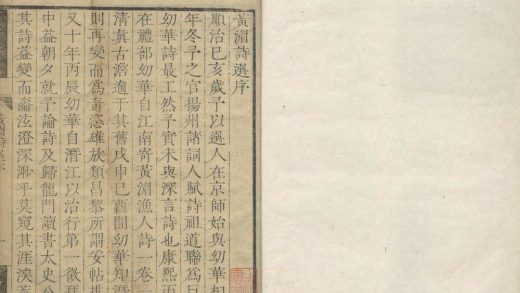 黃湄詩選序
順治己亥歲予以選人在京師始與幼華相
年冬予之官揚州諸詞人賦詩祖道聯為
幼華詩最工然予實未與深言詩也康熙丙
在禮部幼華自江南寄黃湄漁人詩一卷
清真古澹逈于其舊戊申巳酉間幼華知
則再變而為奇恣雄放類昌黎所謂妥帖排
又十年丙辰幼華自潛江以治行第一徵
中益朝夕就予論詩及歸龍門讀書太史公
其詩益變而淪泫澄深渺乎莫窺其涯涘